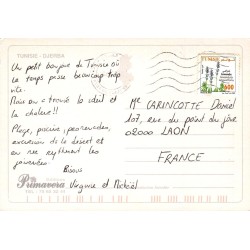 TUNISIE - DJERBA
Un petit bonjour de Tunisie où
le temps passe beaucoup trop
vite.
Mais on a trouvé le soleil et
la chaleur!!
Plage, piscine, promenades,
excursion de le désert et
en vie rythment les
journées.
Bisous
Virginie et Mickaël
Mr CARINCOTTE Daniel
107, rue du point du jour
02000 LAON
FRANCE
Primavera
600